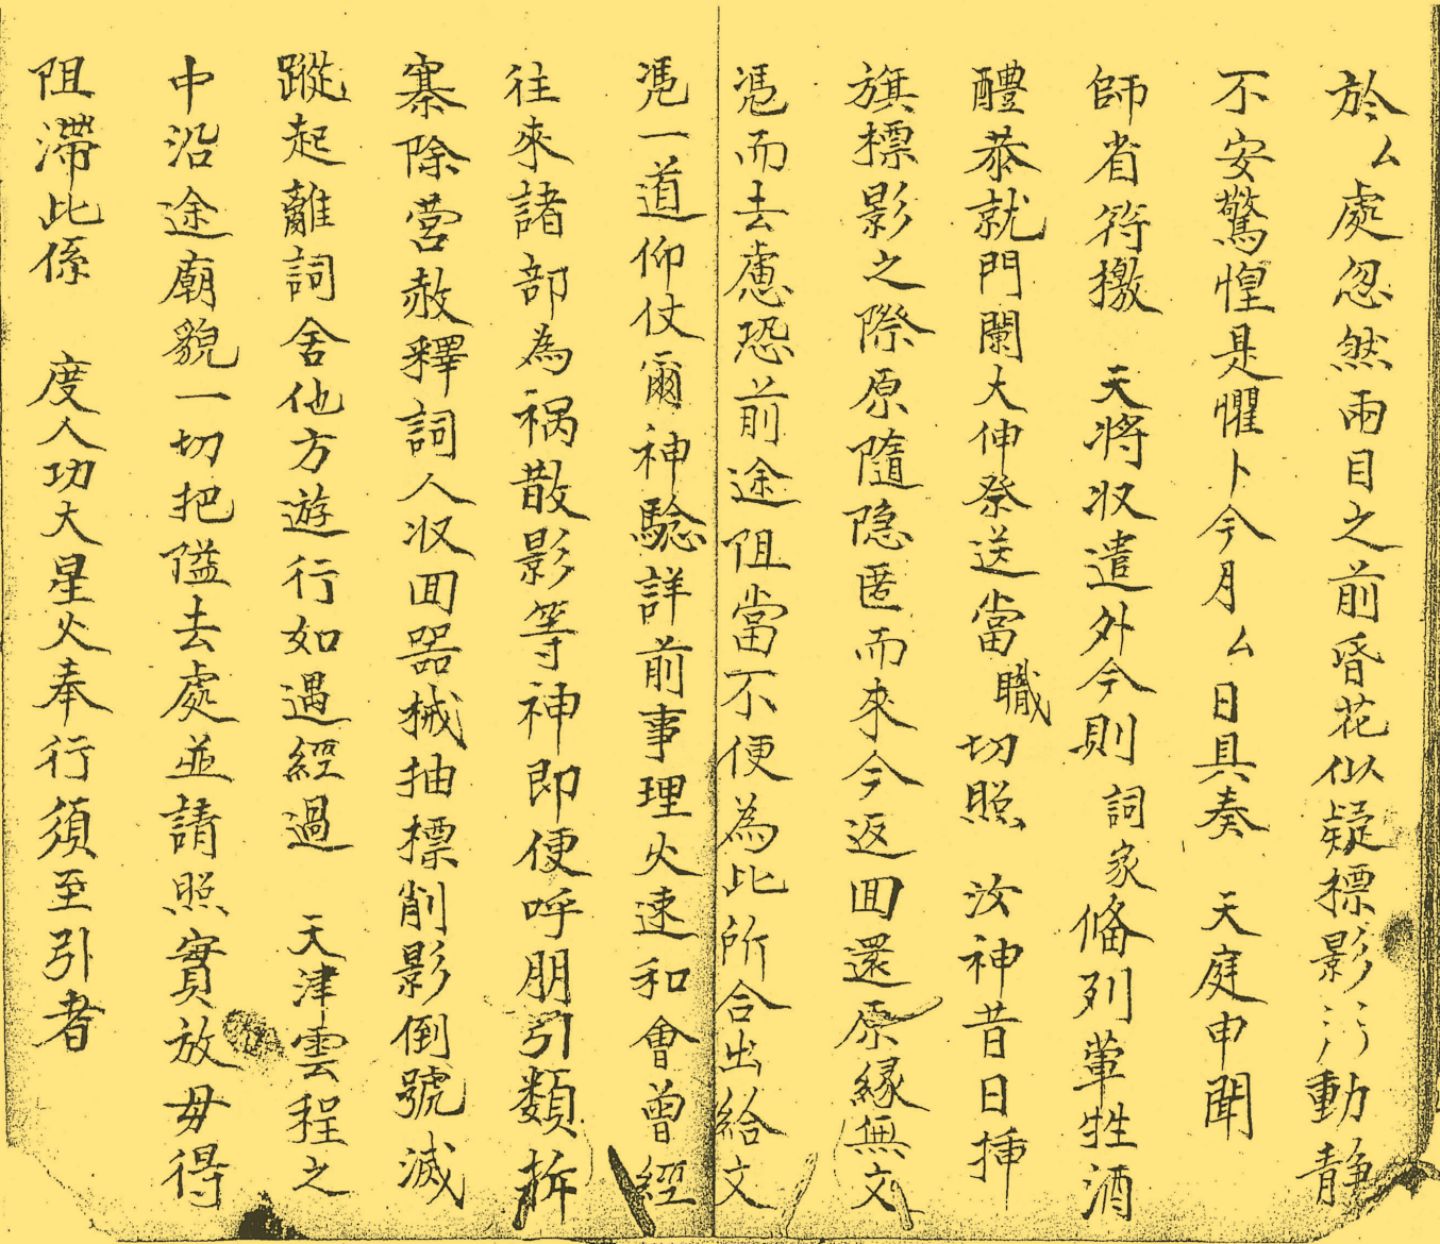 於厶處忽然兩目之前昏花似疑標影污動静
不安驚惶是懼卜今月厶日具奏　天庭申聞
師省符檄　天將収遣外今則　詞家俻列葷牲酒
醴恭就門闌大伸祭送當職切照　汝神昔日揷
旗標影之際原隨隐匿而來今返囬還原緣無文
憑而去慮恐前途阻當不便為此所合出給文
凴一道仰仗爾神騐詳前事理火速和會曾經
往來諸部為禍散影等神即便呼朋引類拆
寨除営赦釋詞人収囬器械抽標削影倒號滅
蹤起離詞舍他方遊行如遇經過　天津雲程之
中沿途廟貌一切把隘去處並請照實放毋得
阻滯此係　度人功大星火奉行須至引者